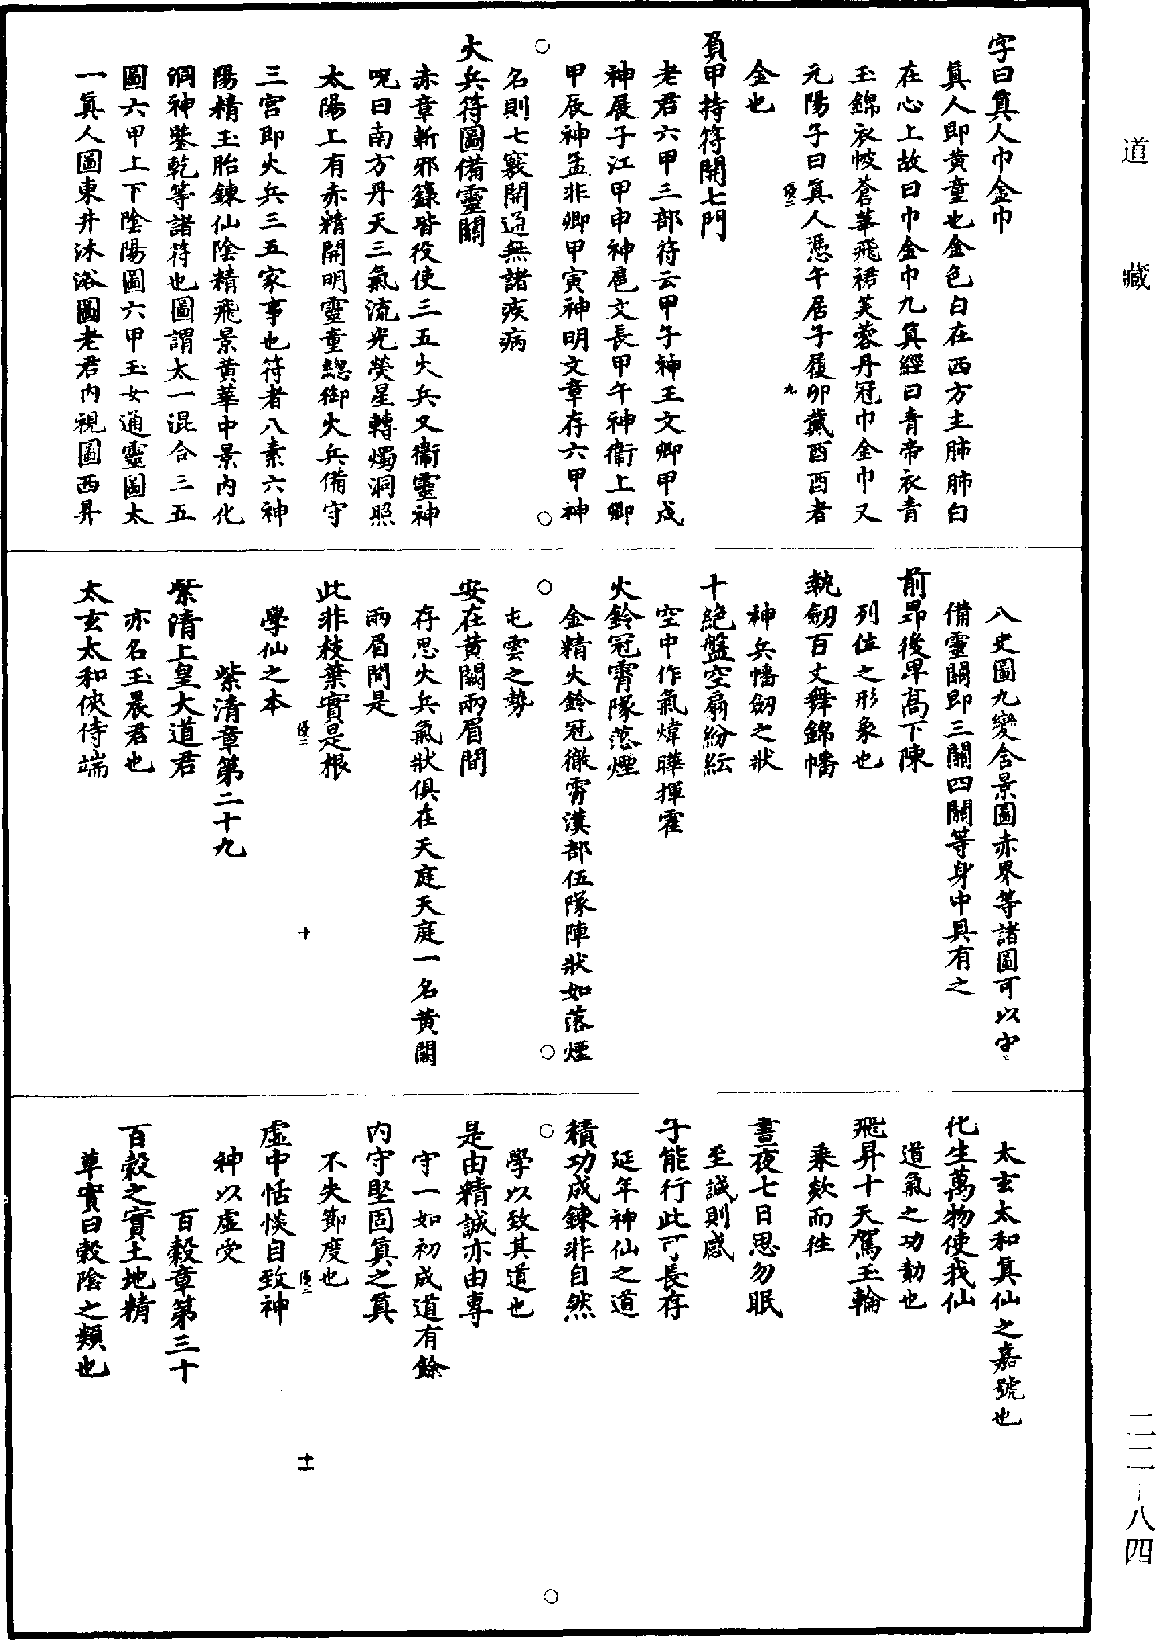 字曰真人巾金巾
真人即黃童也金色白在西方主肺肺白
在心上故曰巾金巾九真經曰青帝衣青
玉錦衣帔蒼華飛裙芙蓉丹冠巾金巾又
元陽子曰真人憑午居子履卯戴酉酉者
金也
負甲持符開七門
老君六甲三部符云甲子神王文卿甲戌
神展子江甲申神扈文長甲午神衞上卿
甲辰神孟非卿甲寅神明文章存六甲神
名則七竅開通無諸疾病
火兵符圖備靈關
赤章斬邪籙皆役使三五火兵又衞靈神
呪曰南方丹天三氣流光熒星轉燭洞照
太陽上有赤精開明靈童總御火兵備守
三宮即火兵三五家事也符者八素六神
陽精玉胎鍊仙陰精飛景黃華中景內化
洞神鑒乾等諸符也圖謂太一混合三五
圖六甲上下陰陽圖六甲玉女通靈圖太
一真人圖東井沐浴圖老君內視圖西昇
八史圖九變含景圖赤界等諸圖可以守
備靈關即三關四關等身中具有之
前昂後卑高下陳
列位之形象也
執劒百丈舞錦幡
神兵幡劒之狀
十絕盤空扇紛紜
空中作氣煒曄揮霍
火鈴冠霄隊落煙
金精火鈴冠徹霄漢部伍隊陣狀如落煙
屯雲之勢
安在黃闕兩眉間
存思火兵氣狀俱在天庭天庭一名黃闕
兩眉間是
此非枝葉實是根
學仙之本
紫清章第二十九
紫清上皇大道君
亦名玉晨君也
太玄太和俠侍端
太玄太和真仙之嘉號也
化生萬物使我仙
道氣之功勣也
飛昇十天駕玉輪
乘欻而往
晝夜七日思勿眠
至誠則感
子能行此可長存
延年神仙之道
積功成鍊非自然
學以致其道也
是由精誠亦由專
守一如初成道有餘
內守堅固真之真
不失節度也
虛中恬惔自致神
神以虛受
百穀章第三十
百穀之實土地精
草實曰穀陰之類也
九
十
十一
道藏
二二-八四